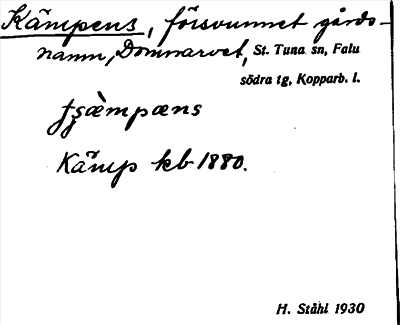 Kämpens, försvunnet gårds-
namn, Domnarvet, St. Tuna sn, Falu
södra tg, Kopparb. l.
tʂæ̀mpæns
Kämp kb 1880.
H. Ståhl 1930